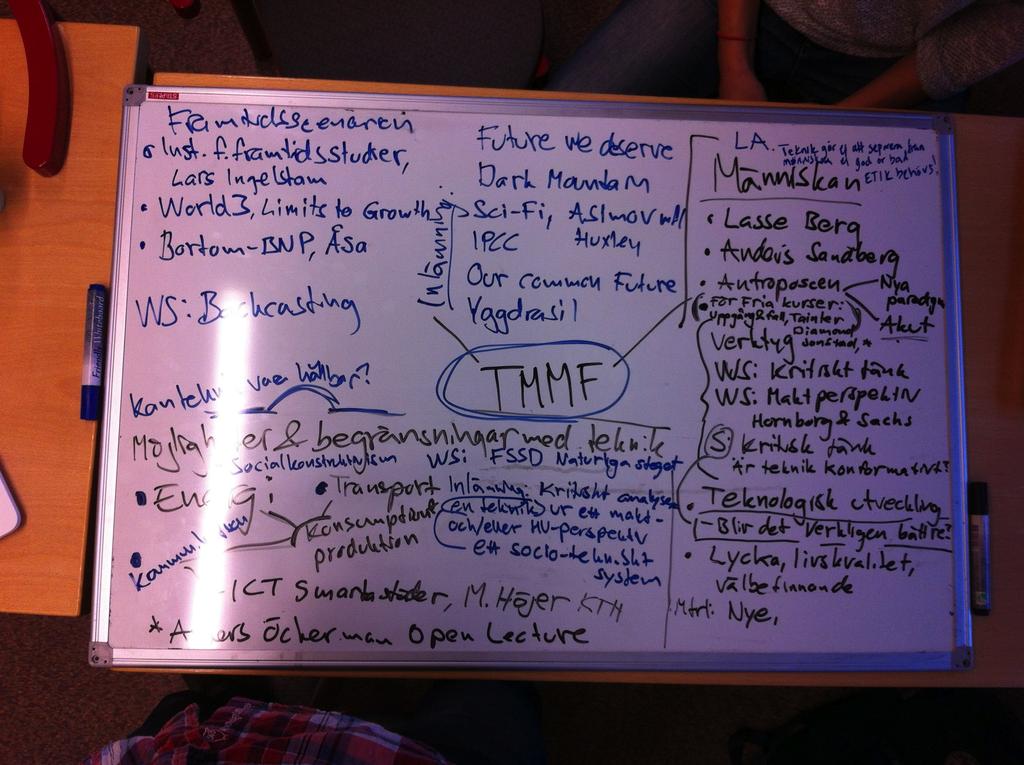 Framtidsscenarier
Inst. f. framtidsstudier,
Lars Ingelstam
World3, Limits to Growth
Bortom-BNP, Åsa
WS: Backcasting
Future we deserve
Dark Mountain
Sci-Fi, Asimov mfl
Huxley
IPCC
Our common Future
Yggdrasil
Inlämn
TMMF
LA. Teknik gör ej att
människan ej god or
ETIK behövs!
Människan
Lasse Berg
Anders Sandberg
Antroposcen
Nya
paradigm
Akut
För Fria kurser:
Uppgång & fall, Tainter
Diamond
Verktyg
WS: Kritiskt tänk
WS: Maktperspektiv
Hornborg & Sachs
S: Kritisk tänk
Är teknik konformativt?
Teknologisk utveckling
- Blir det verkligen bättre?
Lycka, livskvalitet,
välbefinnande
Mtrl: Nye,
Kan teknik vara hållbar?
Möjligheter & begränsningar med teknik
Socialkonstruktivism WS: FSSD Naturliga steget
Energi
Transport
Konsumption &
produktion
Inlämn: Kritiskt analysera
en teknik ur ett makt-
och/eller HU-perspektiv
ett socio-tekniskt
system
- ICT Smarta städer, M. Höjer KTH
* A ers Öckerman Open Lecture
Friendly Whiteboard